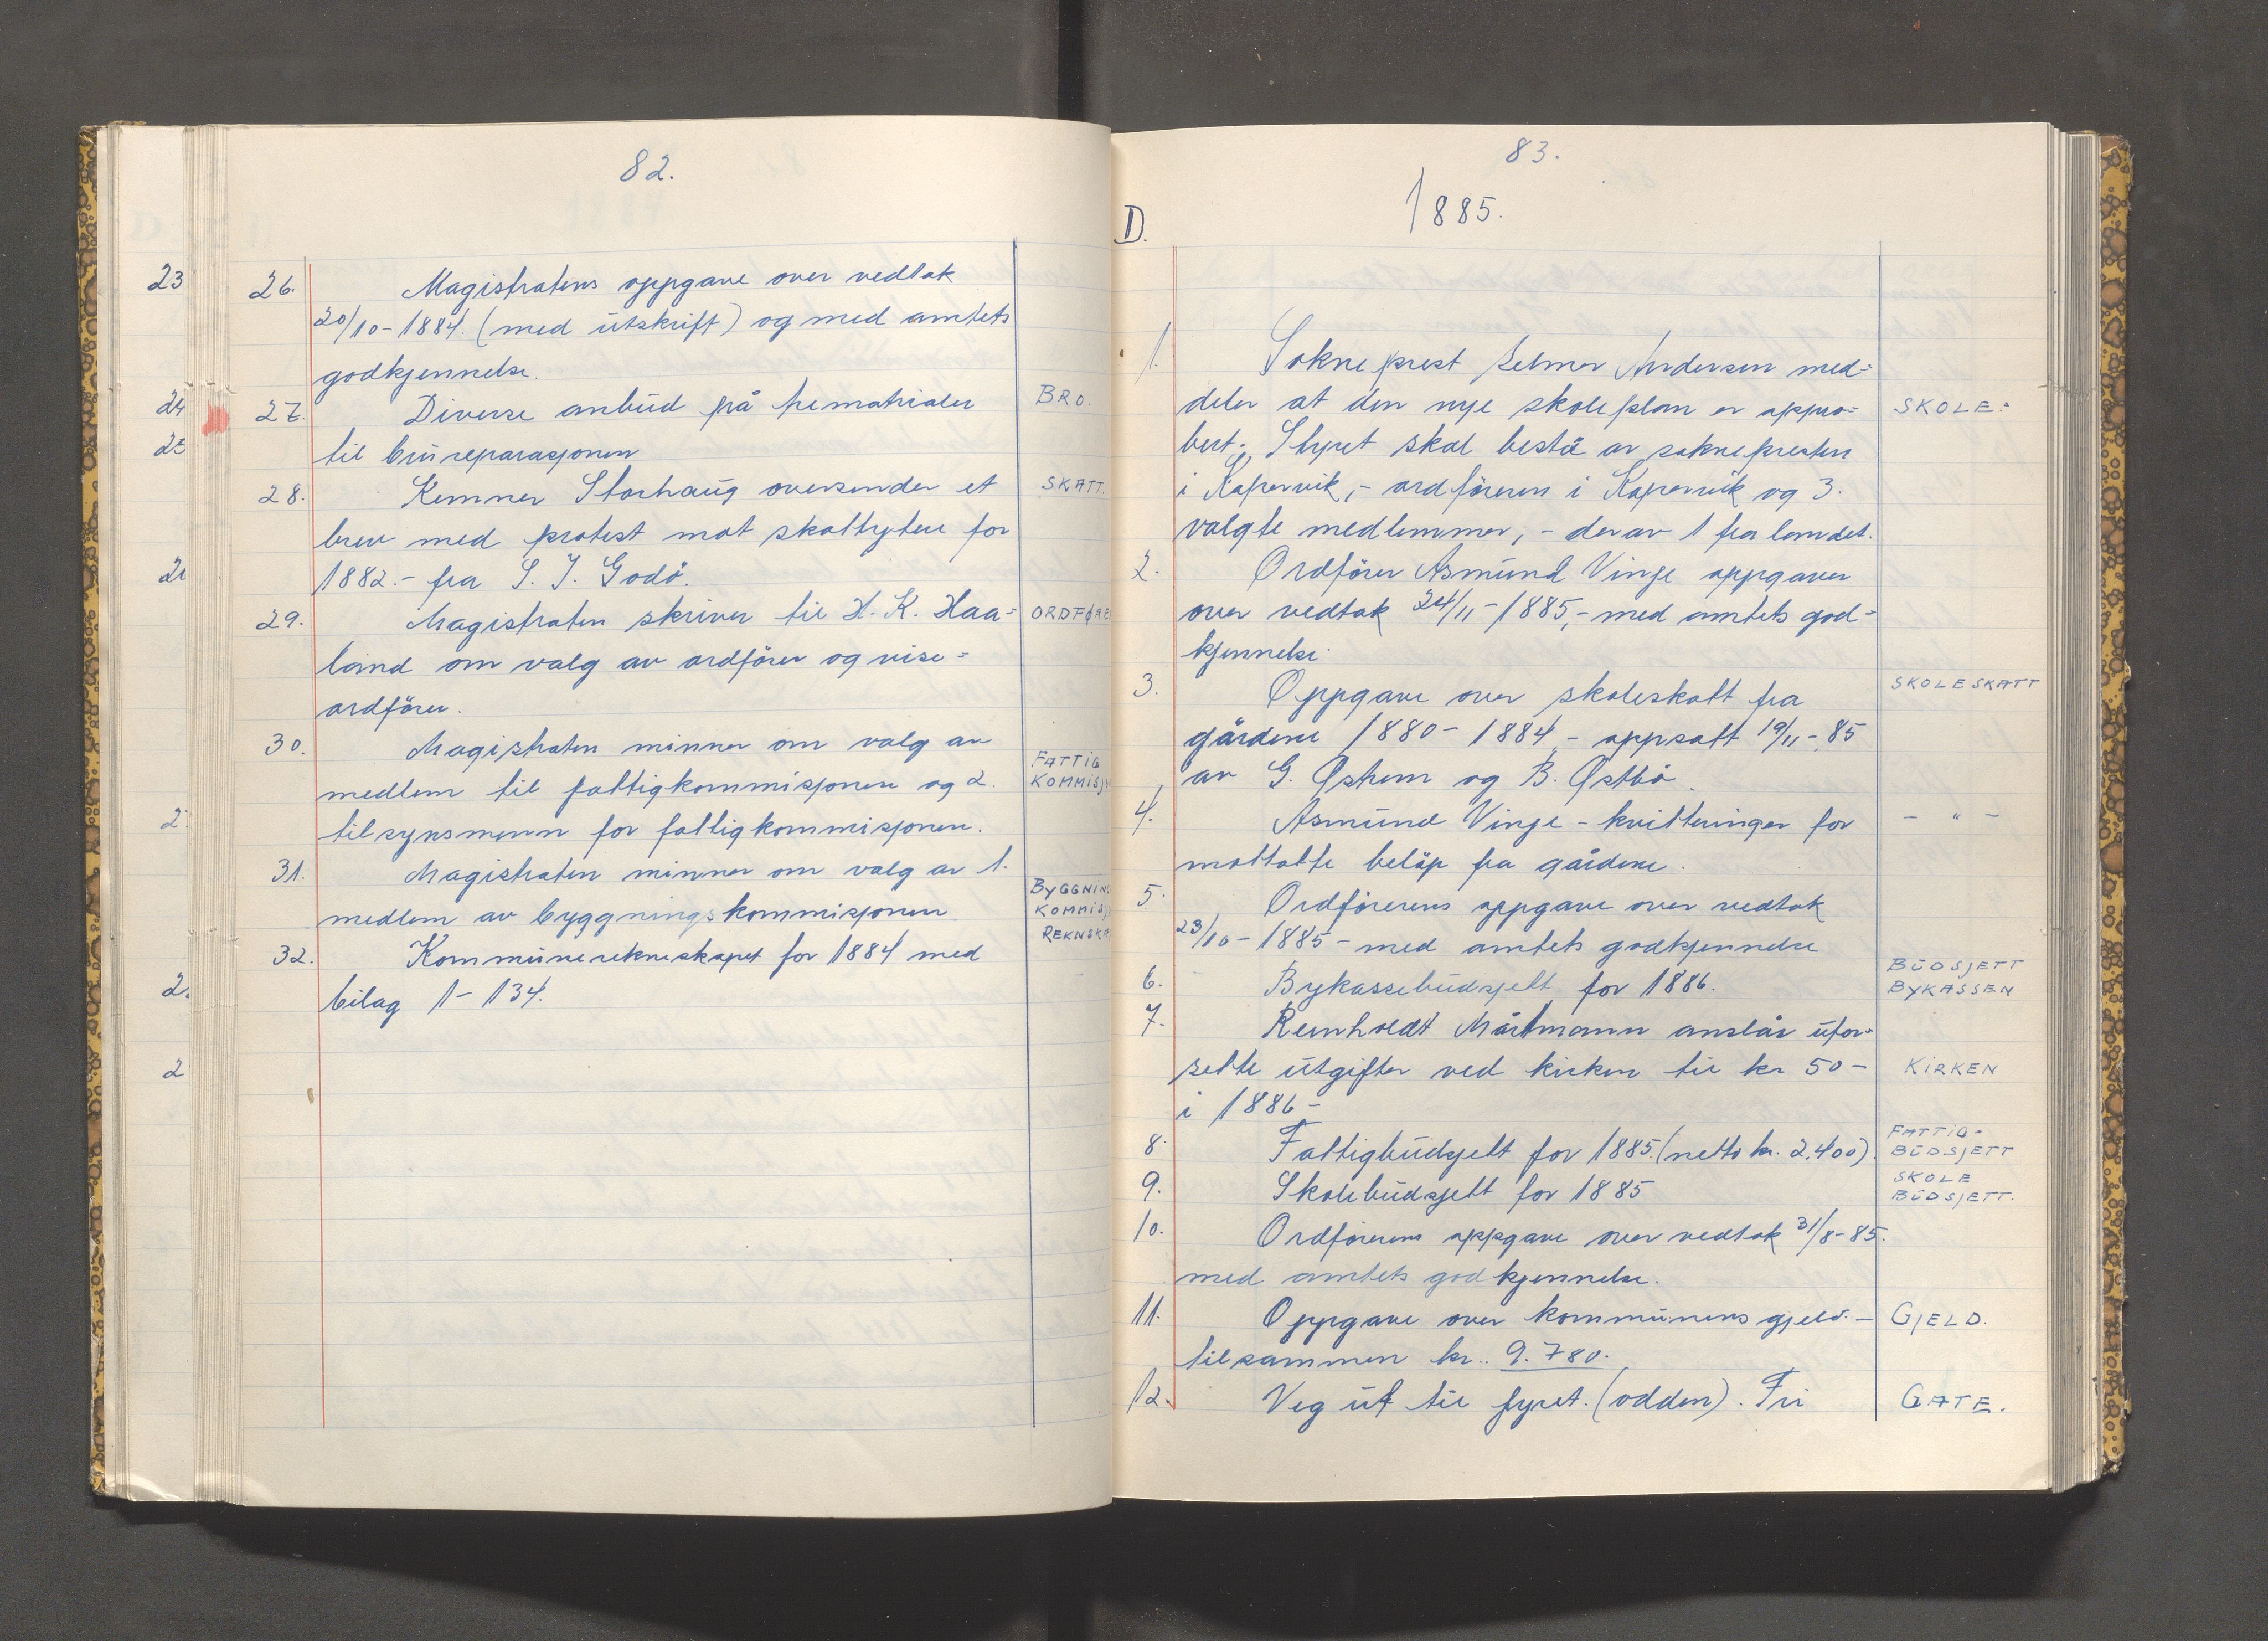 82.
23
26. Magistratens oppgave over vedtak
20/10-1884. (med utskrift) og med amtets
godkjennelse.
24
27. Diverse anbud på trematrialer BRO.
25
til brureparasjonen
28. Kemner Storhaug oversender et SKATT.
brev med protest mot skattytere for
1882.- fra S. J. Godö.
29. Magistraten skriver til H. K. Haa= ORDFØRE
land om valg av ordförer og vise=
ordförer.
30. Magistraten minner om valg av FATTIG
medlem til fattigkommisjonen og 2. KOMMISJ
tilsynsmenn for fattigkommisjonen.
31. Magistraten minner om valg av 1. BYGGNIN
medlem av byggningskommisjonen KOMMISJ
REKNSKA
32. Kommunerekneskapet for 1884 med
bilag 1-134.
83.
1885.
D.
1. Sokneprest Selmer Andersen med=
deler at den nye skoleplan er appro= SKOLE=
bert. Styret skal bestå av soknepresten
i Kopervik,- ordföreren i Kopervik og 3.
valgte medlemmer, - derav 1 fra landet.
2. Ordförer Asmund Vinje oppgaver
over vedtak 24/11-1885,- med amtets god=
kjennelse.
3. Oppgave over skoleskatt fra SKOLESKATT
gårdene 1880-1884 - oppsatt 19/11-85
av G. Østrem og B. Østbö.
4. Asmund Vinje - kvitteringer for - " -
mottatte belöp fra gårdene.
5. Ordförerens oppgave over vedtak
23/10-1885 - med amtets godkjennelse
6. Bykassebudsjett for 1886. BUDSJETT
BYKASSEN
7. Reinholdt Mårtmann anslår ufor=
sette utgifter ved kirken til kr 50- KIRKEN
i 1886-
8. Fattigbudsjett for 1885. (netto kr. 2.400). FATTIG-
BUDSJETT
9. Skolebudsjett for 1885 SKOLE
BUDSJETT.
10. Ordförerens oppgave over vedtak 31/8-85.
med amtets godkjennelse.
11. Oppgave over kommunens gjeld.- GJELD.
tilsammen kr. 9.780.
12. Veg ut til fyret. (odden). Fri GATE.